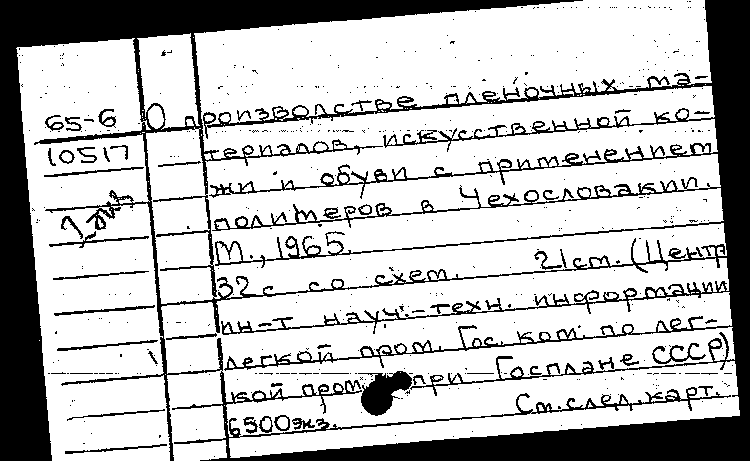 65-6
10517
1 экз
О производстве пленочных ма-
териалов, искусственной ко-
жи и обуви с применением
полимеров в Чехословакии.
М., 1965.
32 с со схем. 21 см. (Центр
ин-т науч.-техн. информации
легкой пром. Гос. ком. по лег-
кой пром. при Госплане СССР)
6500 экз.
См. след. карт.